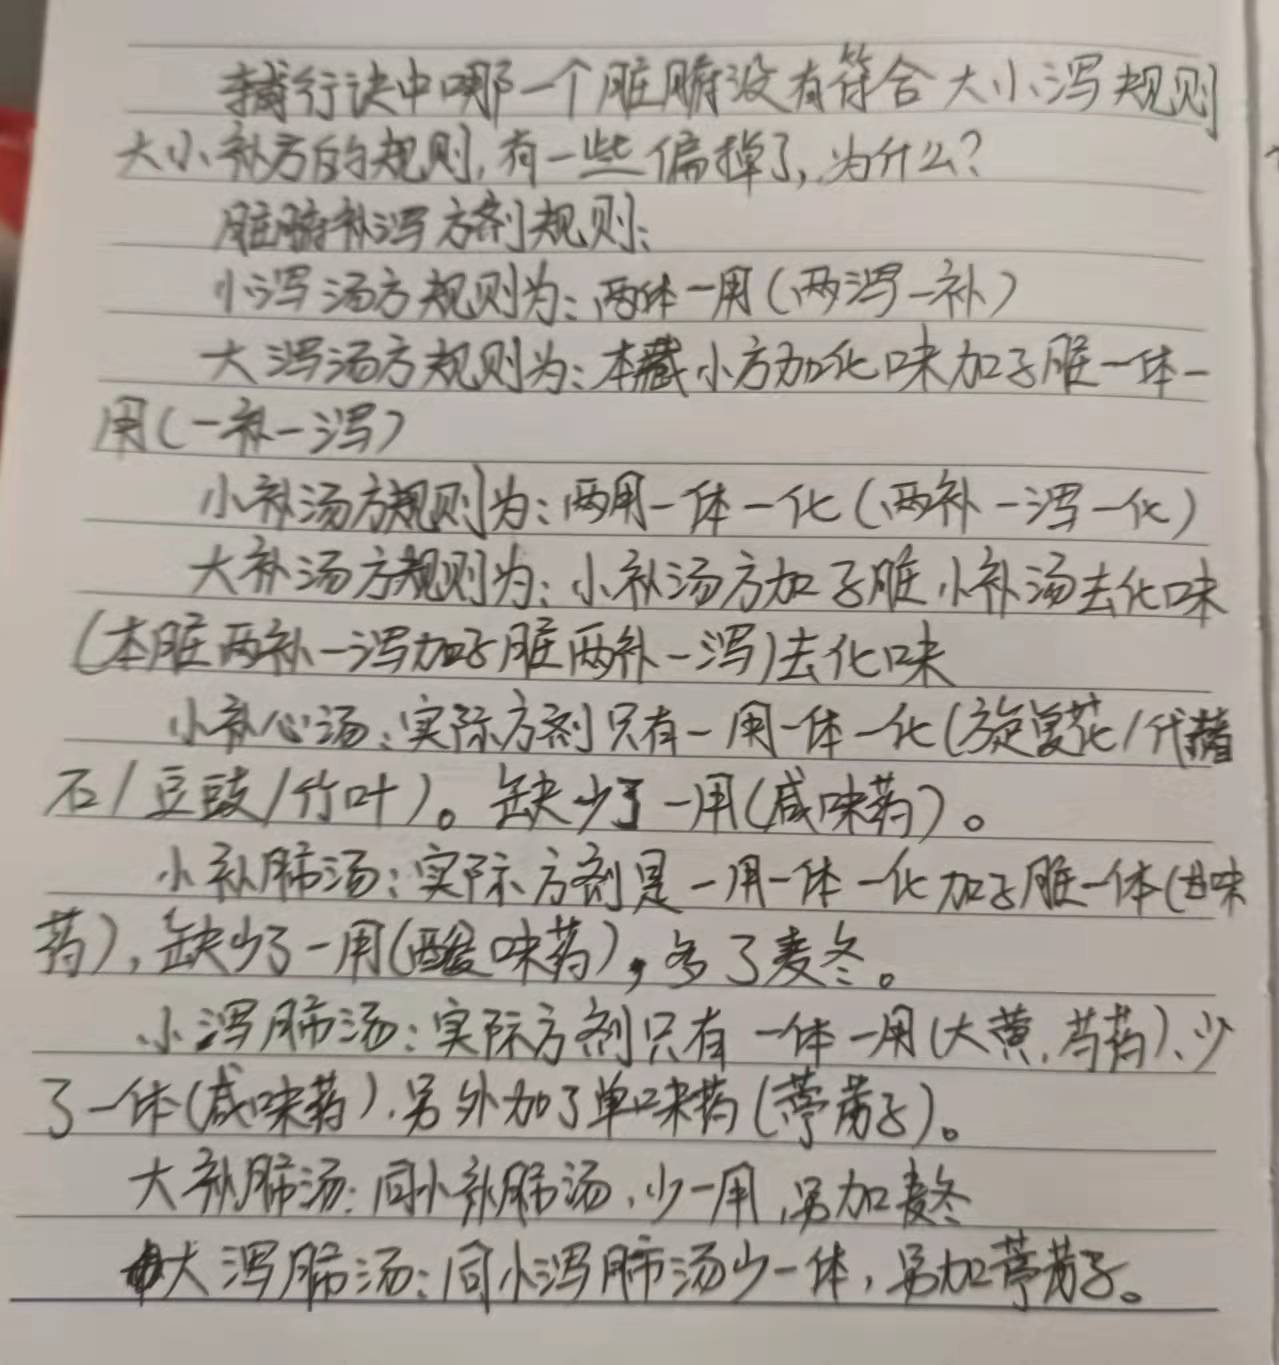 辅行诀中哪一个脏腑没有符合大小泻规则
大小补方的规则,有一些偏掉了,为什么?
脏腑补泻方剂规则:
小泻汤方规则为:两体一用(两泻一补)
大泻汤方规则为:本藏小方加化味加子脏一体一
用(一补一泻)
小补汤方规则为:两用一体一化(两补一泻一化)
大补汤方规则为:小补汤方加子脏小补汤去化味
(本脏两补一泻加子脏两补一泻)去化味
小补心汤:实际方剂只有一用一体一化(旋复花/代赭
石/豆豉/竹叶)。缺少了一用(咸味药)。
小补肺汤:实际方剂是一用一体一化加子脏一体(甘味
药),缺少了一用(酸味药),多了麦冬。
小泻肺汤:实际方剂只有一体一用(大黄,芍药)、少
了一体(咸味药),另外加了单味药(葶苈子)。
大补肺汤:同小补肺汤,少一用,另加麦冬
大泻肺汤:同小泻肺汤少一体,另加葶苈子。